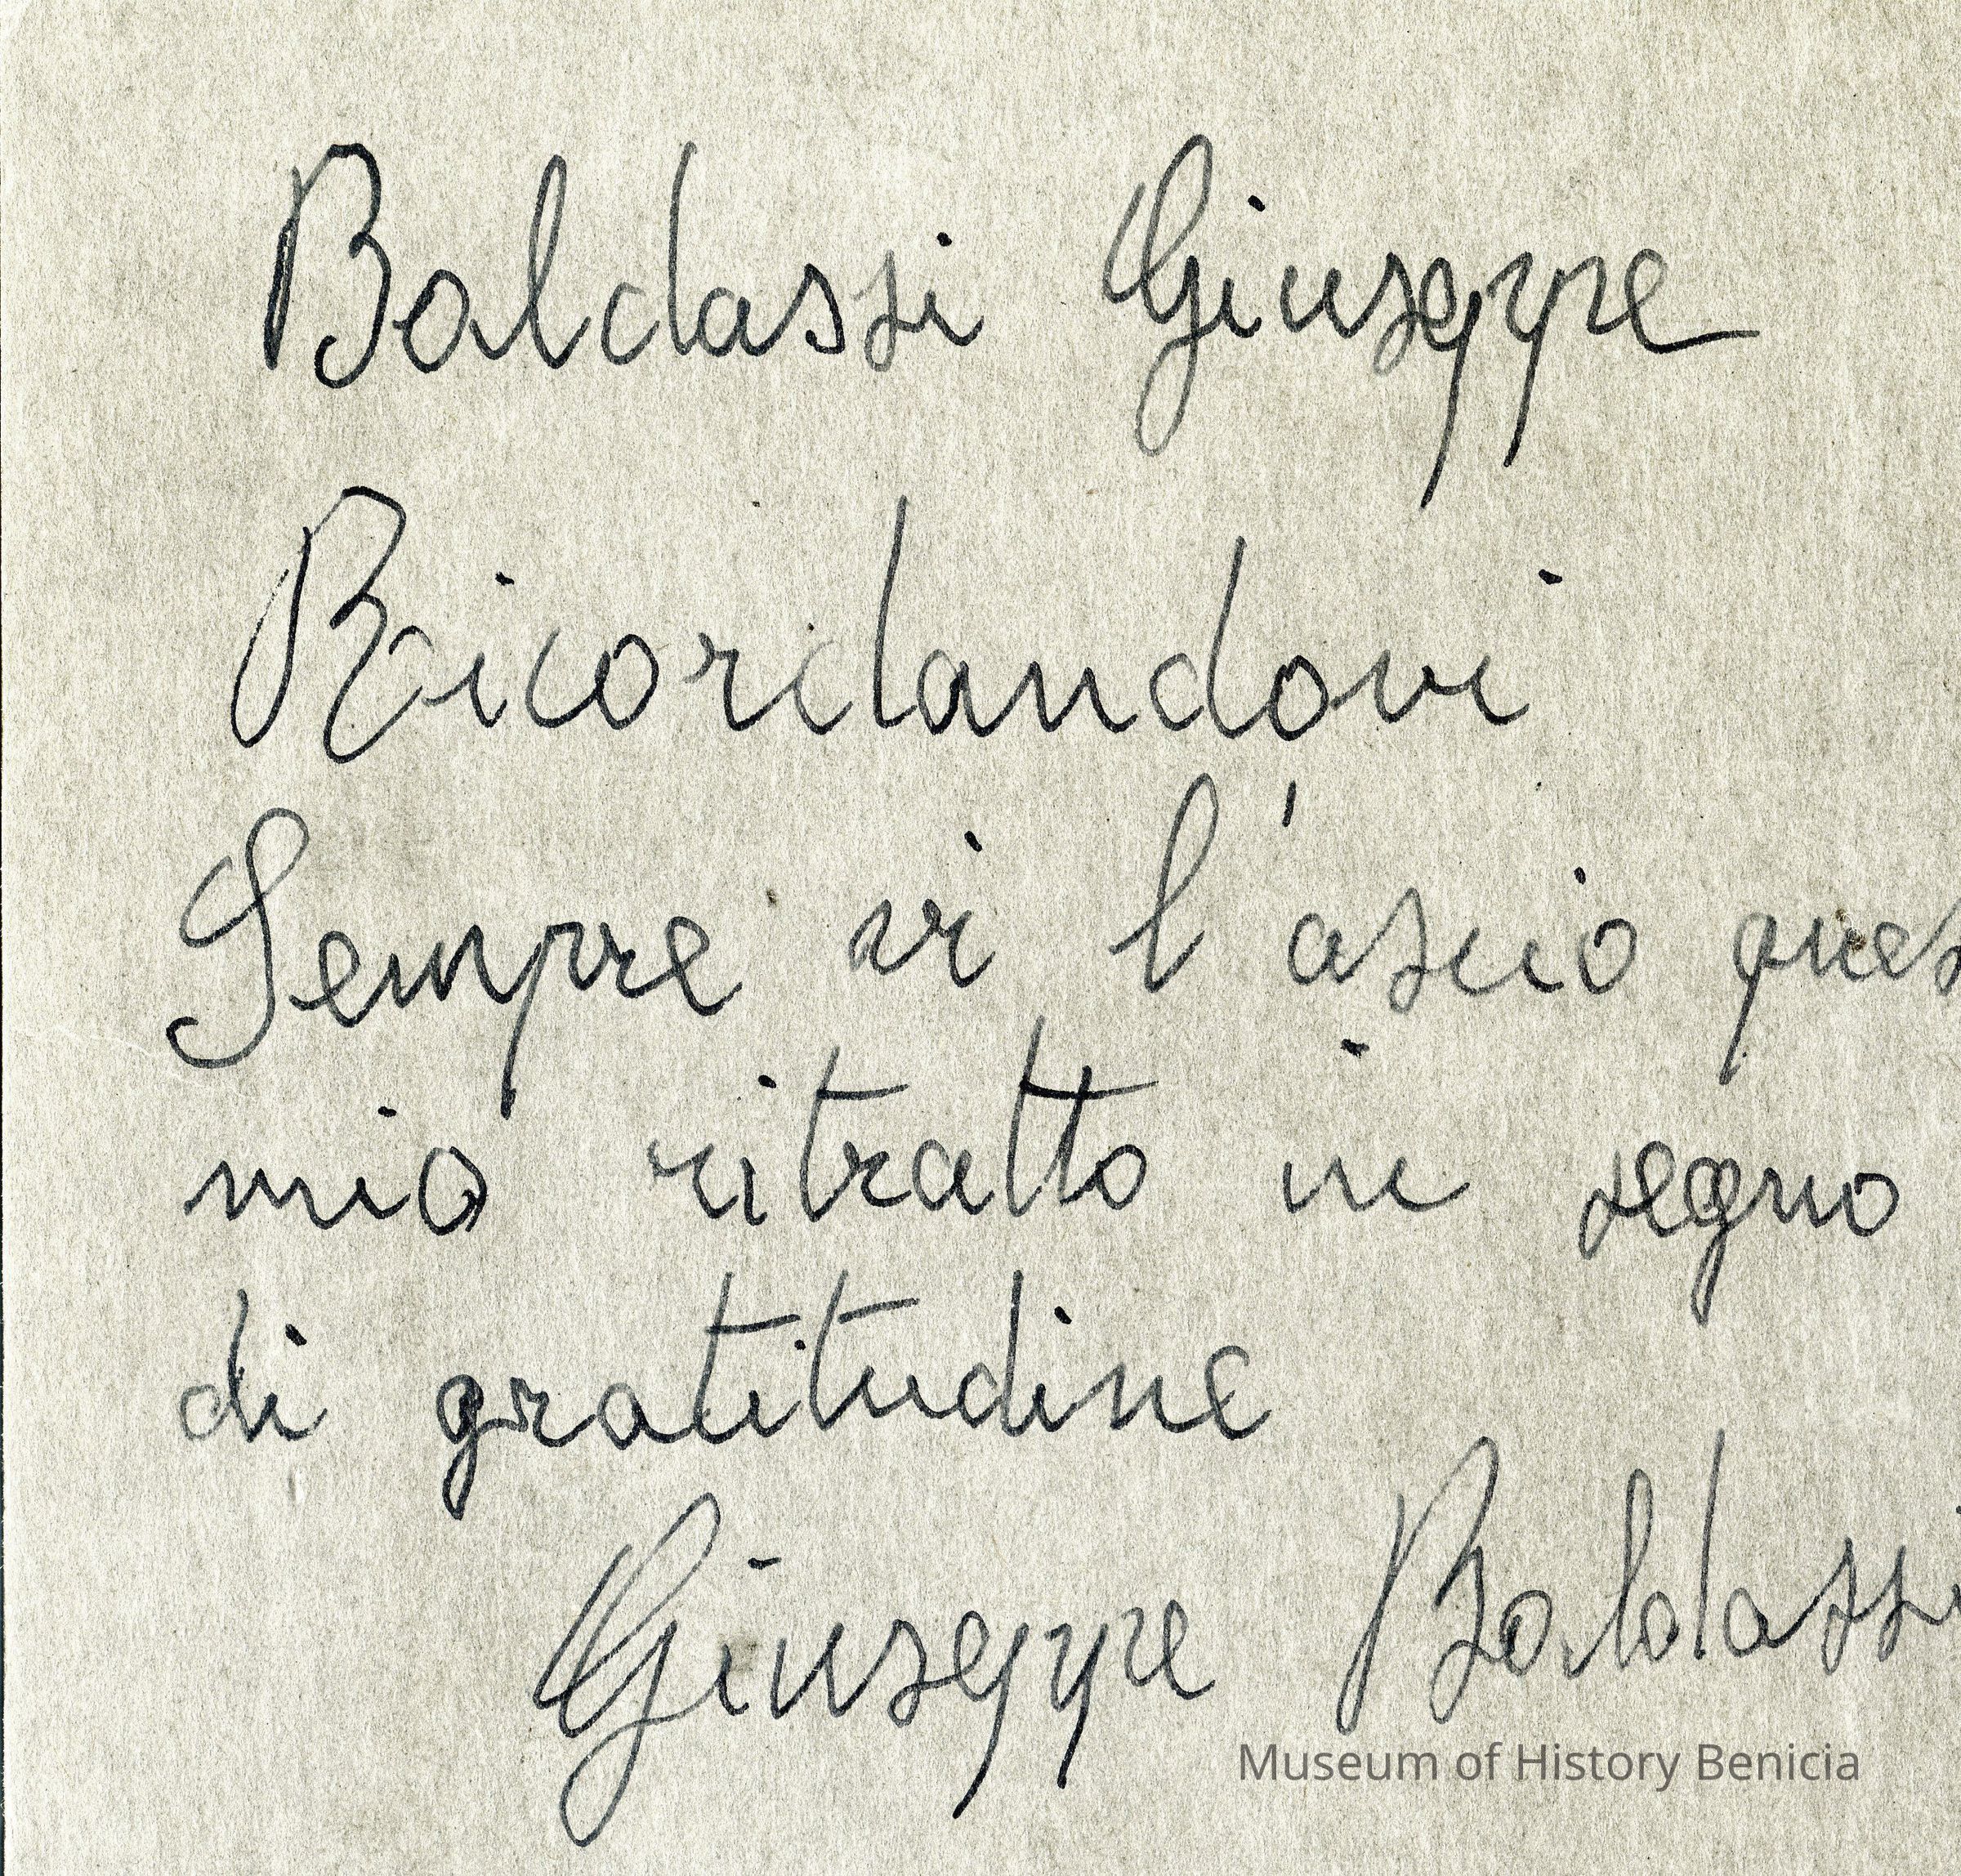 Baldassi Giuseppe
Ricordandovi
Sempre vi l'ascio ques
mio ritratto in segno
di gratitudine
Giuseppe Baldassi
Museum of History Benicia